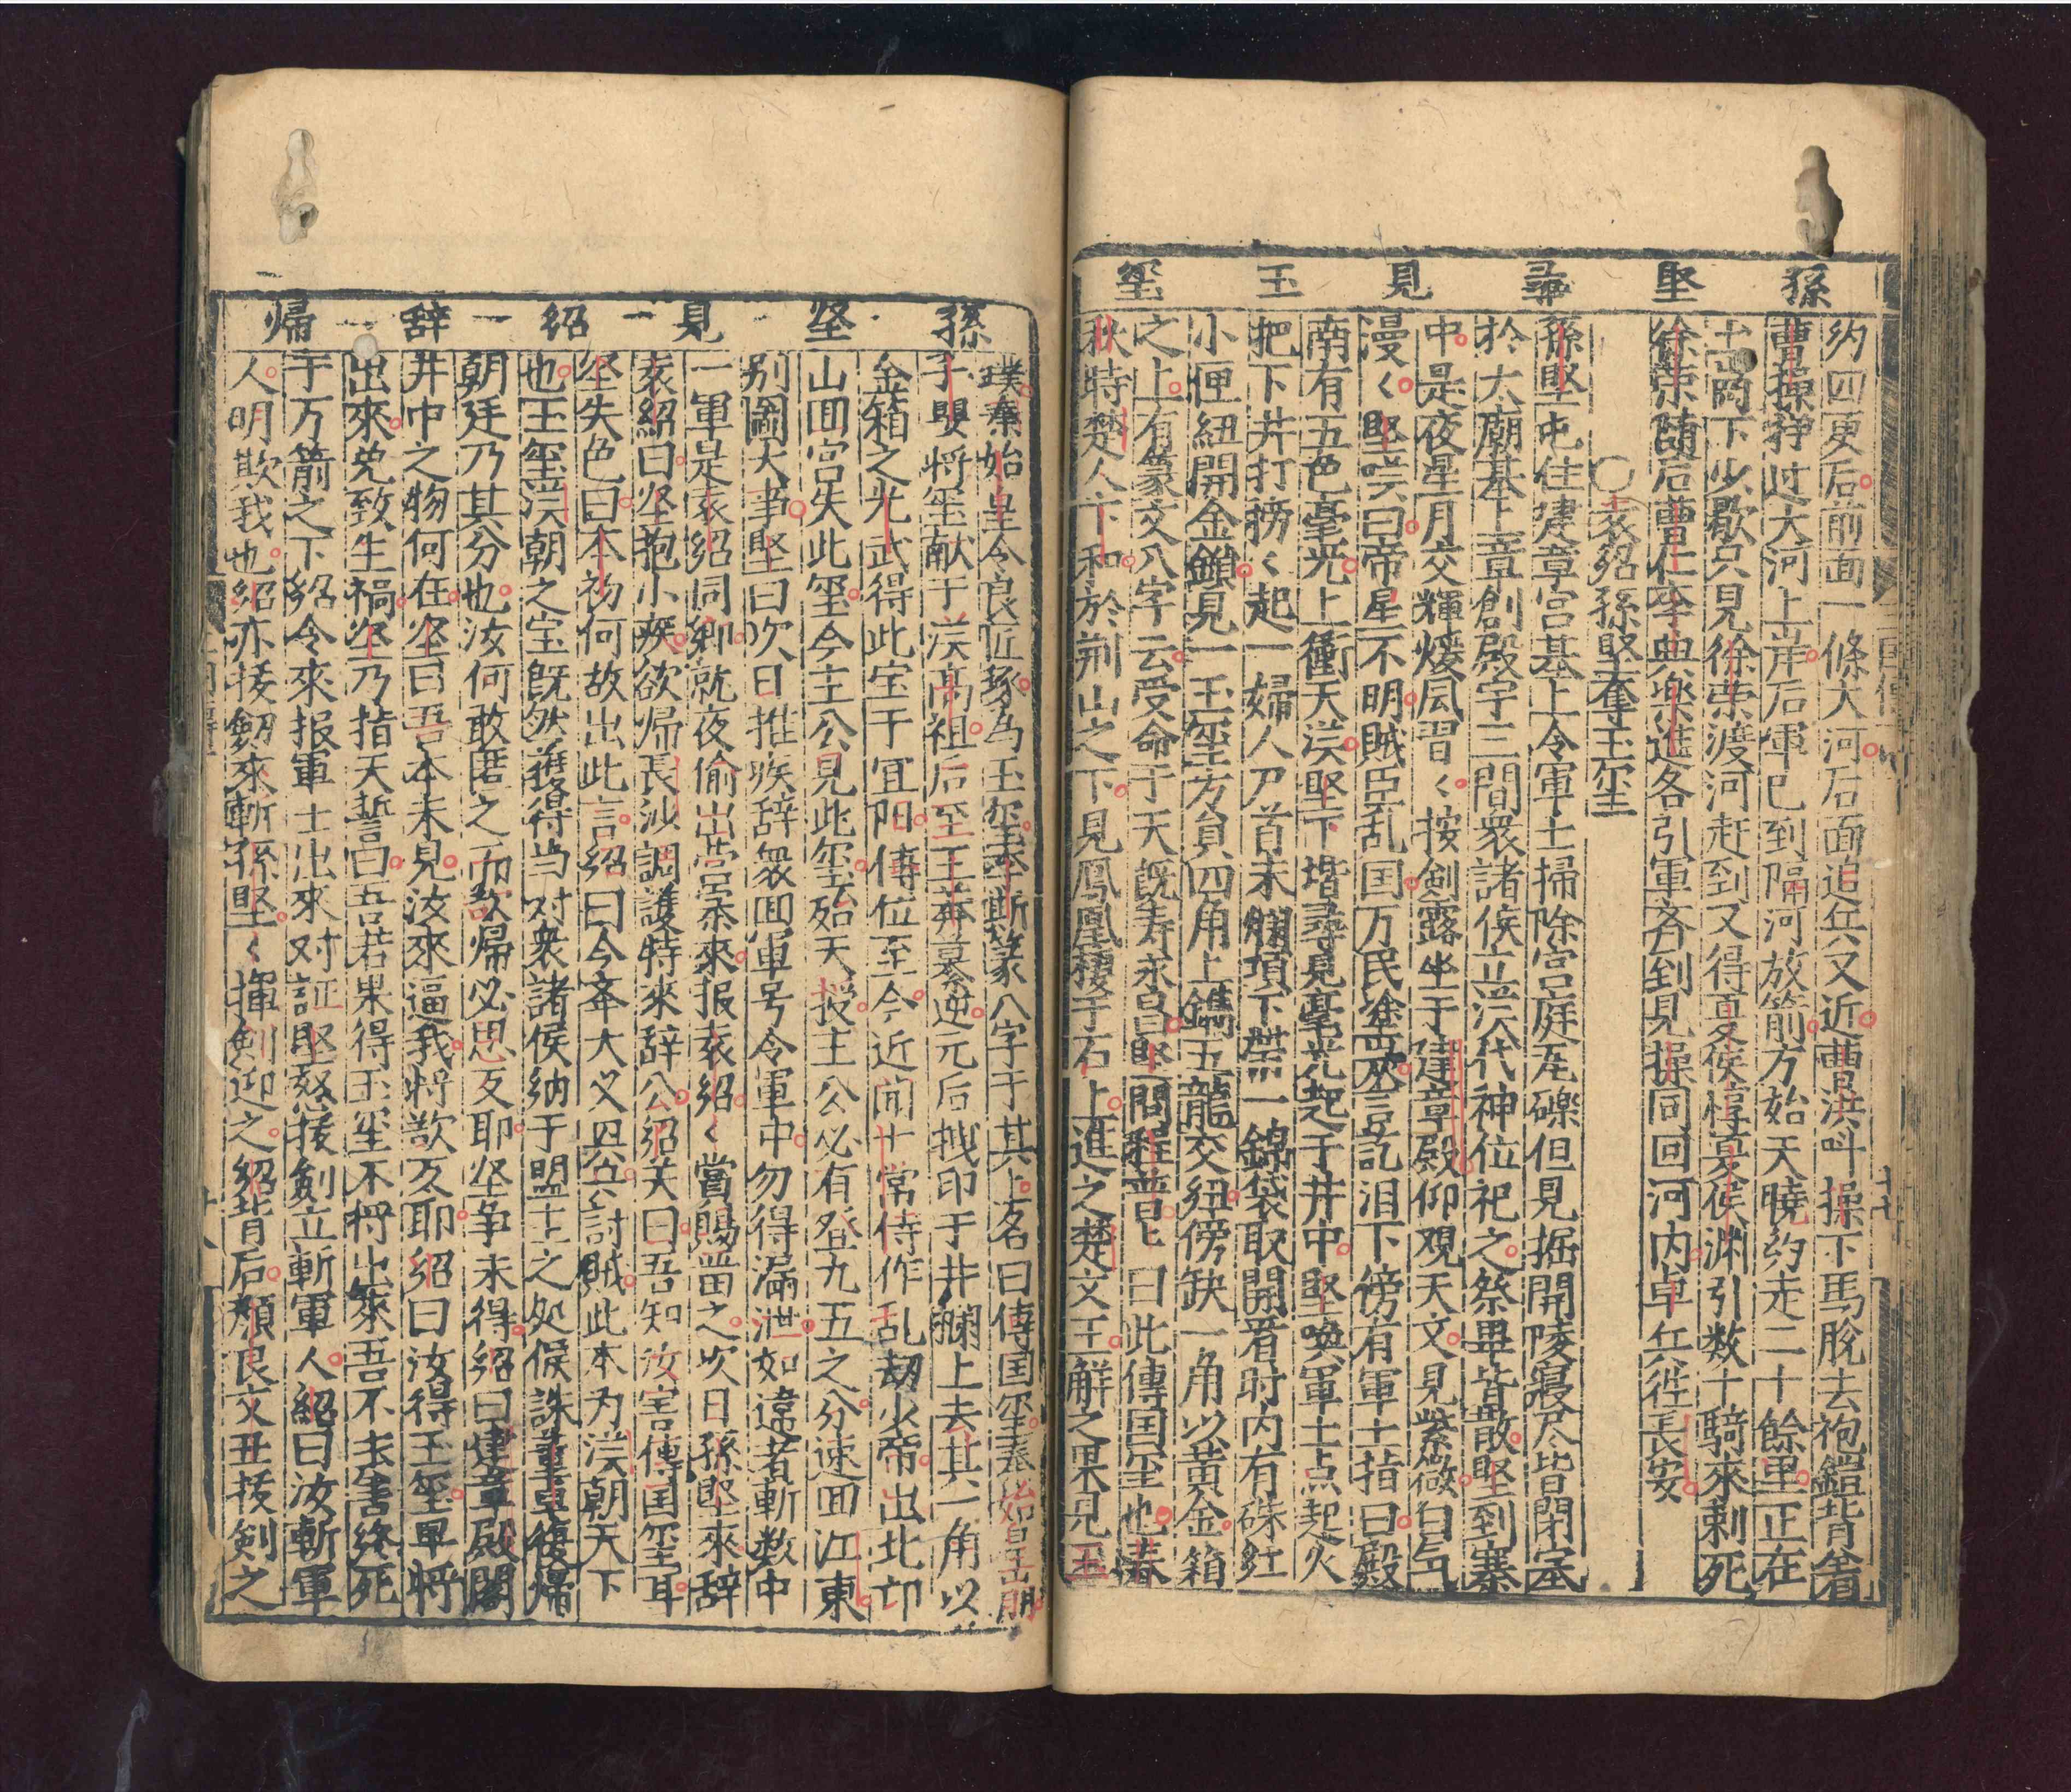 孫堅尋見玉璽
約四更后前面一條大河后面追兵又近曹洪呌操下馬脫去袍鎧背着
曹操狰过大河上岸后軍已到隔河放箭方始天曉約走二十餘里正在
土岡下少歇只見徐荣渡河赶到又得夏侯惇夏侯渊引数十騎來刺死
徐荣随后曹仁李典樂進各引軍齐到見操同回河内卓兵徃長安
○袁紹孫堅奪玉璽
孫堅屯住建章宫基上令軍士掃除宫庭瓦礫但見掘開陵寢尽皆閉塞
於太廟基上章創殿宇三間衆諸侯立汉代神位祀之祭畢皆散堅到寨
中是夜星月交輝煖風習〱按劍露坐于建章殿仰观天文見紫微白气
漫〱堅嘆曰帝星不明賊臣乱国万民塗炭言訖泪下傍有軍士指曰殿
南有五色毫光上衝天汉堅下堦尋見毫光起于井中堅喚軍士点起火
把下井打撈〱起一婦人尸首未爛項下带一錦袋取開看时内有硃紅
小匣紐開金鎖見一玉璽方負四角上鐫五龍交紐傍缺一角以黃金箱
之上有篆文八字云受命于天既寿永昌堅問程普〱曰此傳国璽也春
秋時楚人卞和於荆山之下見鳳凰棲于石上進之楚文王觧之果見玉
孫堅見紹辞帰
璞秦始皇令良匠琢为玉璽李斯篆八字于其上名曰傳国璽秦始皇崩
子嬰将璽献于汉高祖后至王莽篡逆元后㧞印于井欄上去其一角以
金箱之光武得此宝于宜阳傳位至今近闻十常侍作乱刼少帝出北邙
山囬宫失此璽今主公見此璽云始天授主公必有登九五之分速囬江東
别圖大事堅曰次日推疾辞衆囬軍号令軍中勿得漏泄如違者斬数中
一軍是袁紹同鄉就夜偷出营寨來报袁紹〱當賜畄之次日孫堅來辞
袁紹曰坚抱小疾欲帰長沙調護特來辞公紹关曰吾知汝害傳国璽耳
坚失色曰本初何故出此言紹曰今奉大义兴兵討賊此本为汉朝天下
也玉璽汉朝之宝既然獲得当对衆諸侯納于盟主之处候誅董卓復帰
朝廷乃其分也汝何敢匿之而欲帰必思反耶坚争未得紹曰建章殿閣
井中之物何在坚曰吾本未見汝來逼我将欲反耶紹曰汝得玉璽早将
出來免致生祸坚乃指天誓曰吾若果得玉璽不将出來吾不善終死
于万箭之下紹令來报軍士出來对証堅怒拔劍立斬軍人紹曰汝斬軍
人明欺我也紹亦拔劍來斬孫堅〱揮劍迎之紹背后顏良文丑拔劍之